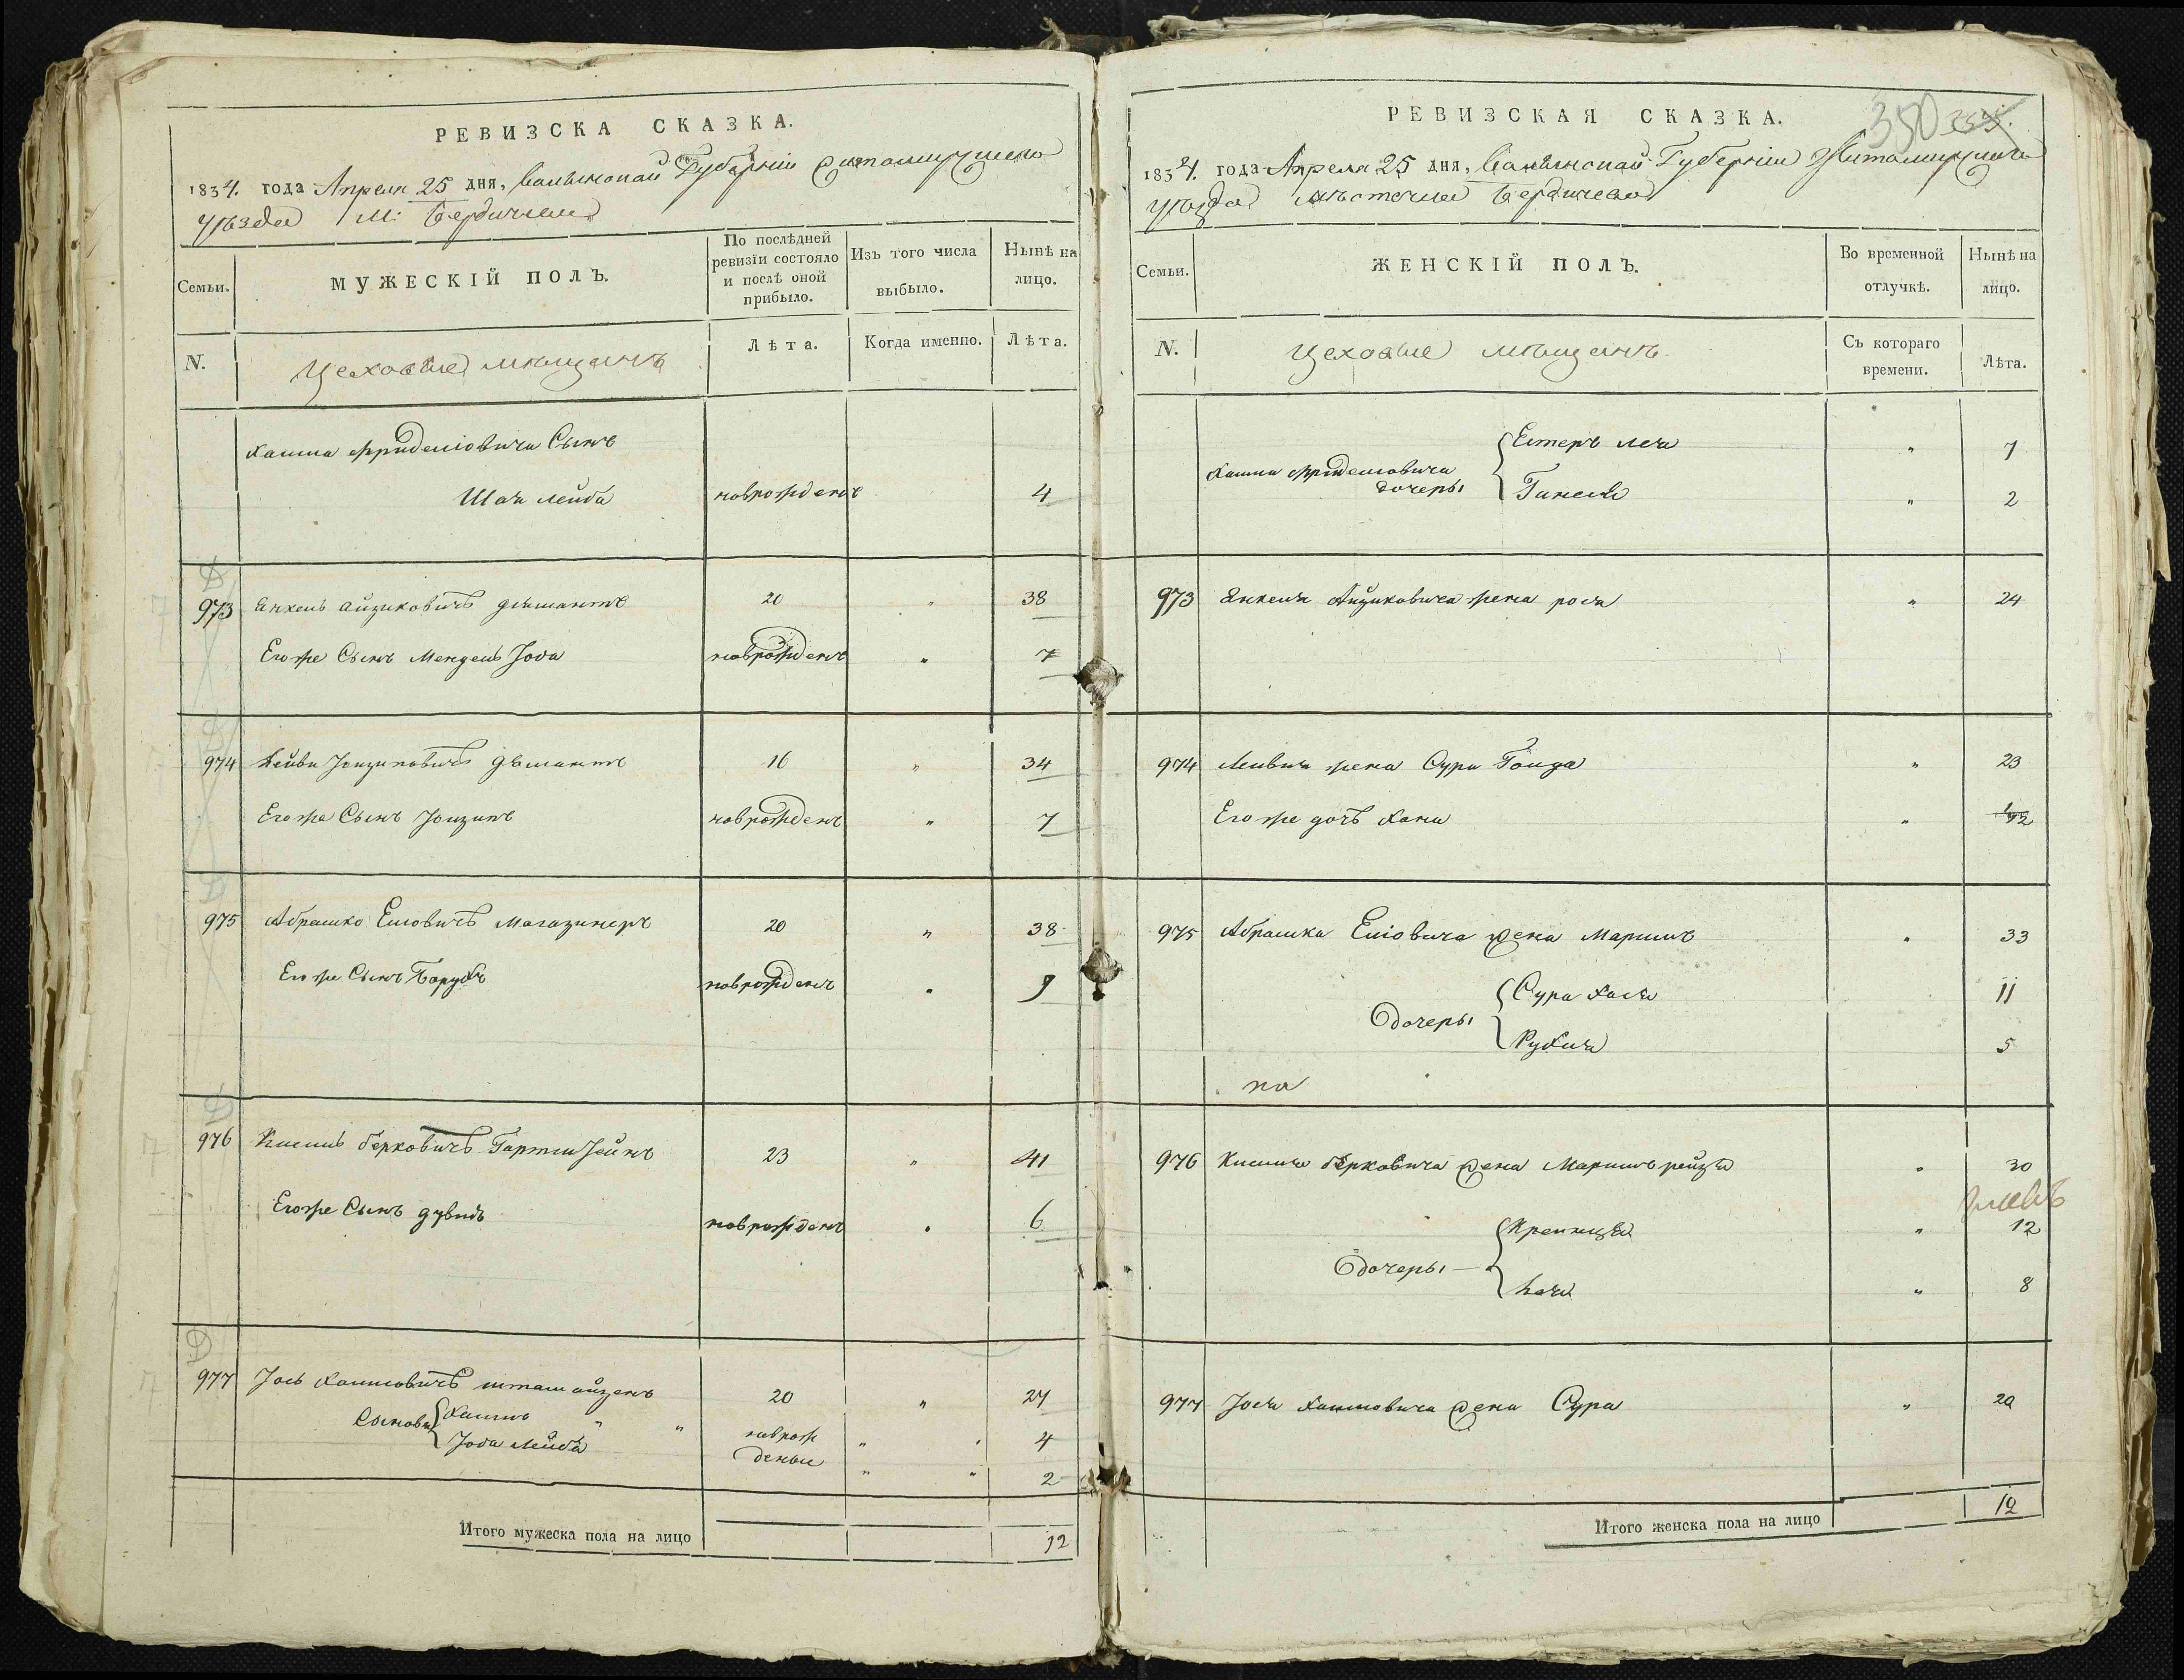 РЕВИЗСКА СКАЗКА.
1834. года Апреля 25 дня, Волынской Губерніи Житомирскаго
уѣзда М: Бердичева
Семьи.
МУЖЕСКІЙ ПОЛЪ.
По послѣдней ревизіи состояло и послѣ оной прибыло.
Изъ того числа выбыло.
Нынѣ на лицо.
N.
Цеховые мѣщанъ
Лѣта.
Когда именно.
Лѣта.
Хаима Фриделіовича Сынъ
Шая лейба новрожденъ 4
973 Янкель айзиковичъ диамантъ 20 " 38
Егоже Сынъ Мендель Іова новрожденъ " 7
974 Лейви Іоизиковичъ диамантъ 16 " 34
Егоже Сынъ Іоизикъ новрожденъ " 7
975 Абрамко Еліовичъ Магазинеръ 20 " 38
Егоже Сынъ Борухъ новрожденъ " 9
976 Кисиль берковичъ 23 " 41
Егоже Сынъ дувидъ новрожденъ " 6
977 Іось Хаимовичъ 20 " 24
Сыновья Хаимъ " " новрож " " 4
Іова Лейба деные " " 2
Итого мужеска пола на лицо 12
РЕВИЗСКАЯ СКАЗКА.
350
1834. года Апреля 25 дня, Волынской Губерніи Житомирскаго
уѣзда мѣстечка Бердичева
Семьи.
ЖЕНСКІЙ ПОЛЪ.
Во временной отлучкѣ.
Нынѣ на лицо.
N.
Цеховые мѣщанъ.
Съ котораго времени.
Лѣта.
Естеръ Лея " 7
Хаима Фриделіовича
дочеры
Гинеся " 2
973 Янкеля Айзиковича жена рося " 24
974 Лейвия жена Сура Гоизя " 23
Егоже дочь Хана " 12
975 Абрамка Еліовича жена Маримъ " 33
дочеры
Сура Хася 11
Рухля 5
на
976 Кисиля берковича жена Маримъ рейзя " 30
дочеры
Креинця " 12
Хая " 8
977 Іося Хаимовича жена Сура " 20
Итого женска пола на лицо 12